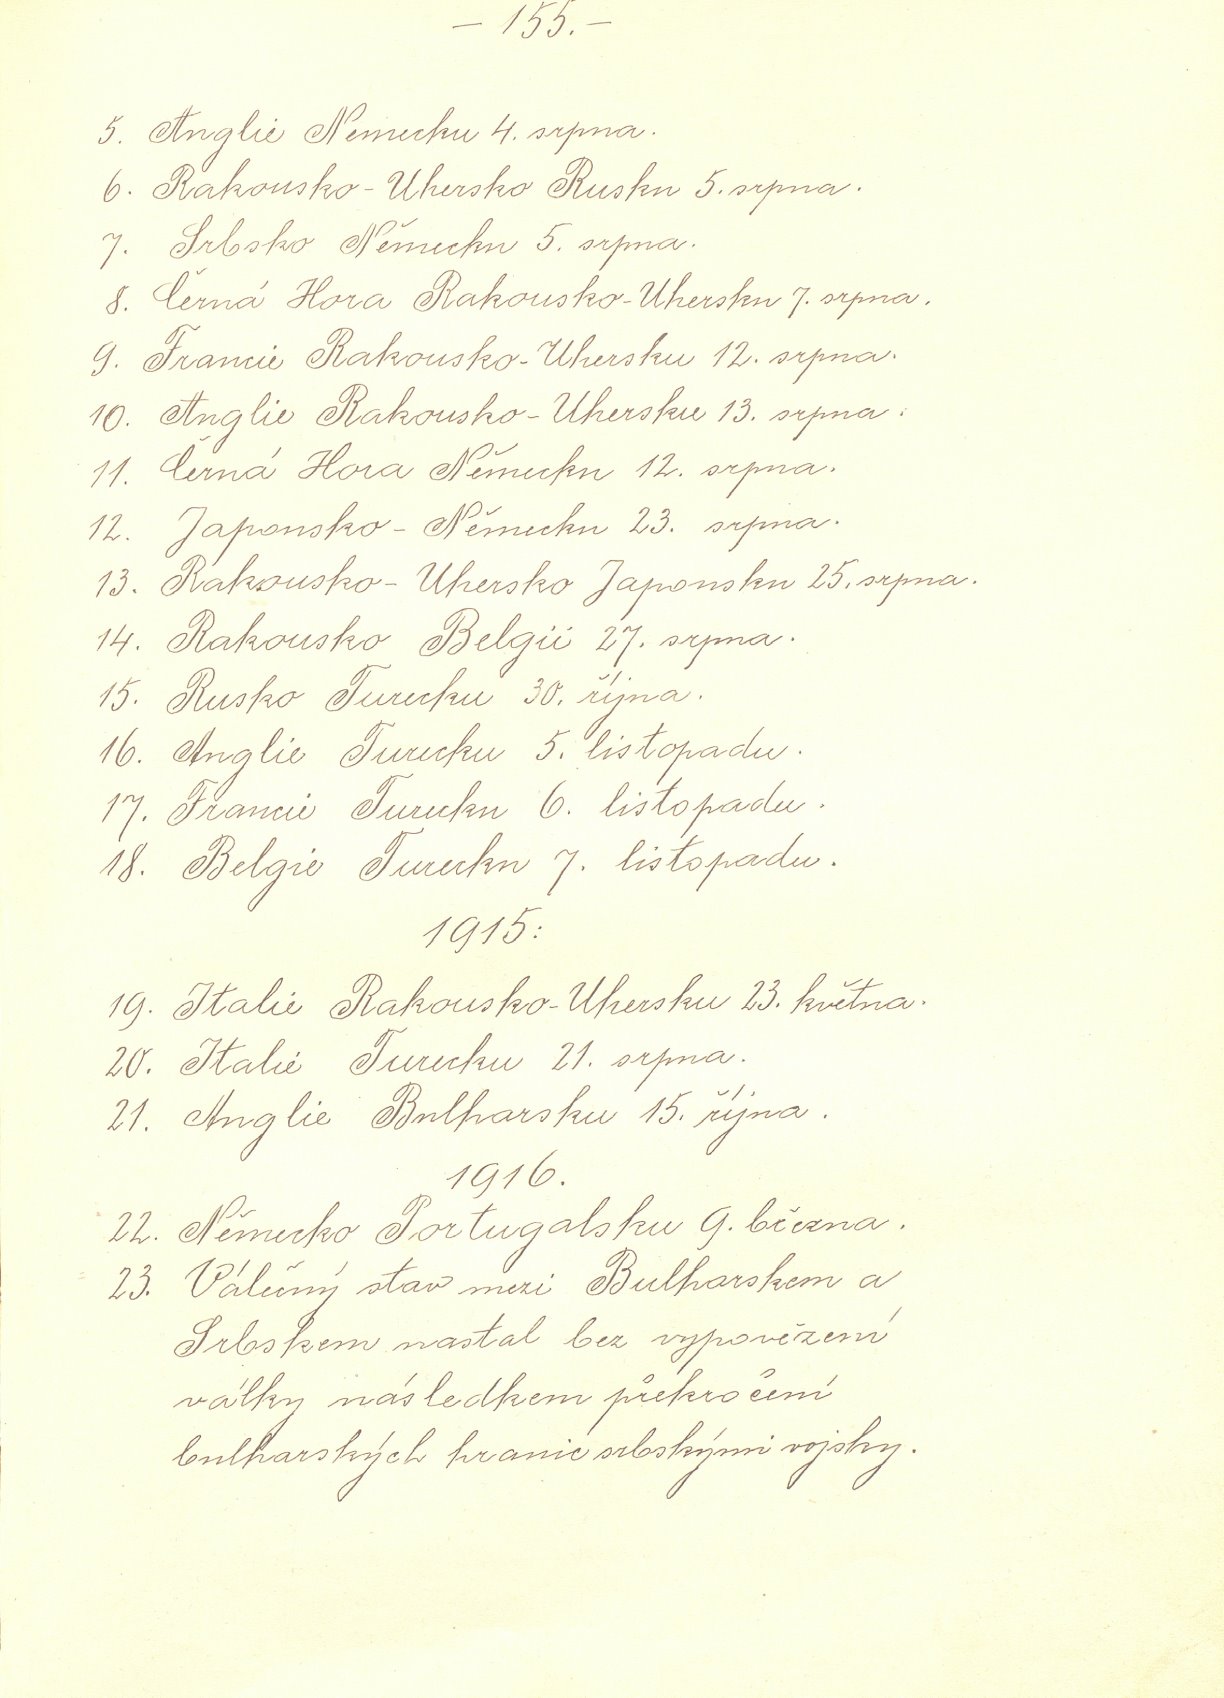 – 155. –
5. Anglie Nemecku 4. srpna.
6. Rakousko-Uhersko Rusku 5. srpna.
7. Srbsko Německu 5. srpna.
8. Černá Hora Rakousko-Uhersku 7. srpna.
9. Francie Rakousko-Uhersku 12. srpna.
10. Anglie Rakousko-Uhersku 13. srpna.
11. Černá Hora Německu 12. srpna.
12. Japonsko - Německu 23. srpna.
13. Rakousko-Uhersko Japonsku 25. srpna.
14. Rakousko Belgii 27. srpna.
15. Rusko Turecku 30. října.
16. Anglie Turecku 5. listopadu.
17. Francie Turecku 6. listopadu.
18. Belgie Turecku 7. listopadu.
1915:
19. Italie Rakousko-Uhersku 23. května.
20. Italie Turecku 21. srpna.
21. Anglie Bulharsku 15. října.
1916.
22. Německo Portugalsku 9. března.
23. Válečný stav mezi Bulharskem a
Srbskem nastal bez vypovězení
války následkem překročení
bulharských hranic srbskými vojsky.